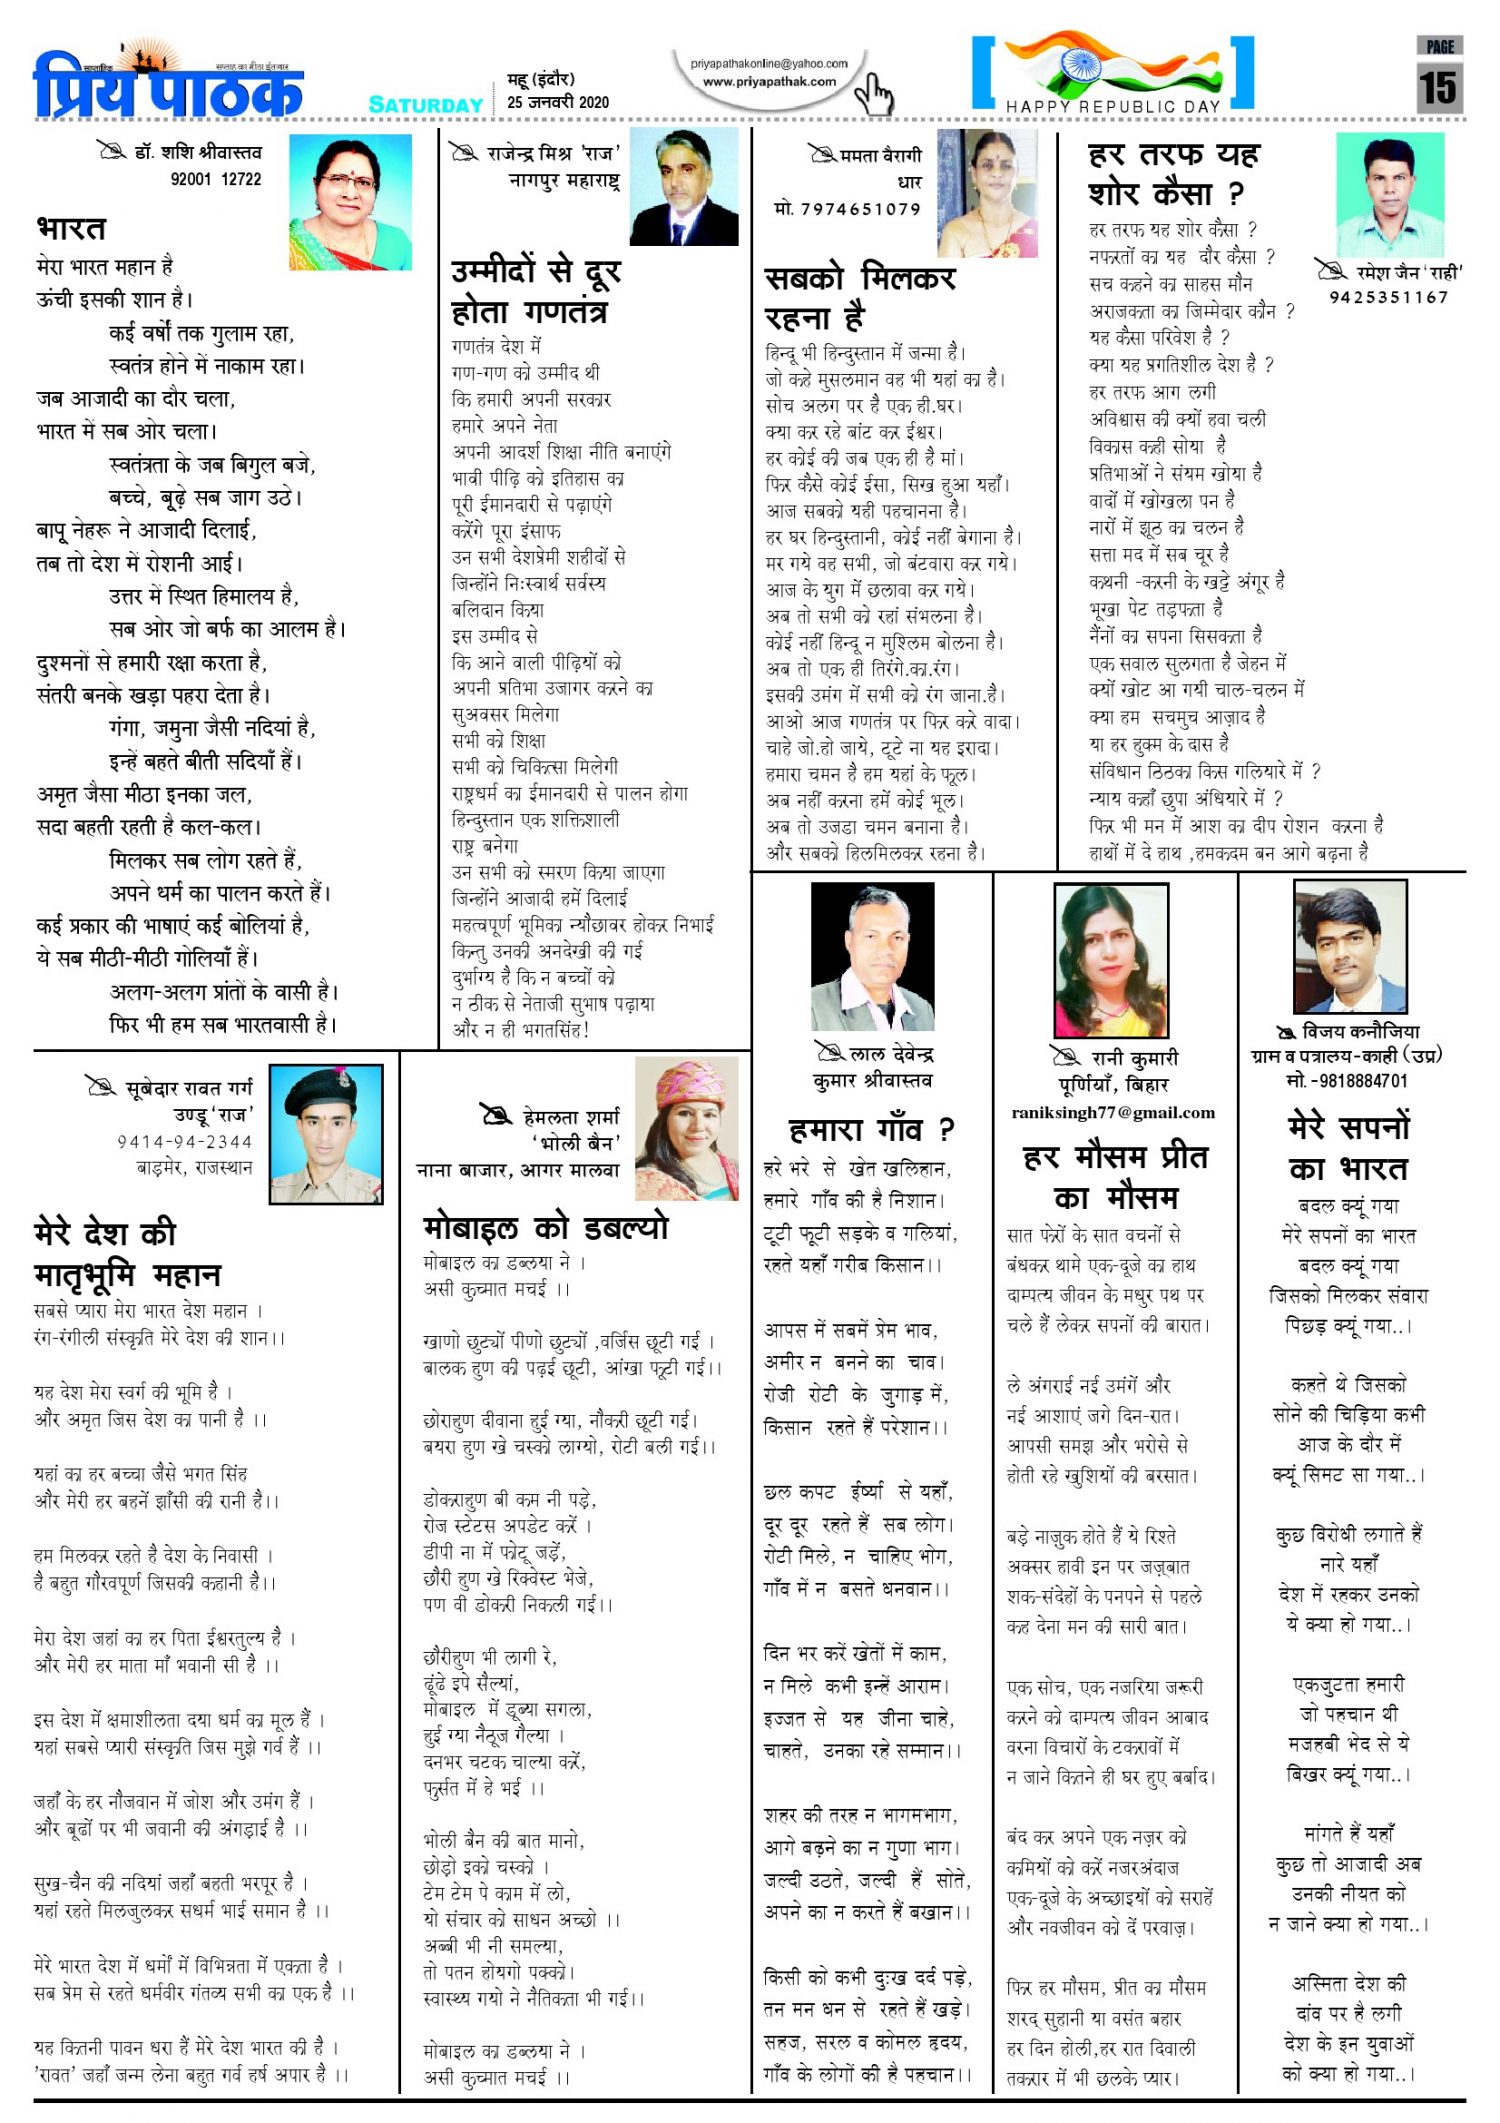 साप्ताहिक
सप्ताह का मीठा इंतजार
प्रिय पाठक
SATURDAY
महू (इंदौर)
25 जनवरी 2020
priyapathakonline@yahoo.com
www.priyapathak.com
HAPPY REPUBLIC DAY
PAGE
15
डॉ. शशि श्रीवास्तव
92001 12722
भारत
मेरा भारत महान है
ऊंची इसकी शान है।
कई वर्षों तक गुलाम रहा,
स्वतंत्र होने में नाकाम रहा।
जब आजादी का दौर चला,
भारत में सब ओर चला।
स्वतंत्रता के जब बिगुल बजे,
बच्चे, बूढ़े सब जाग उठे।
बापू नेहरू ने आजादी दिलाई,
तब तो देश में रोशनी आई।
उत्तर में स्थित हिमालय है,
सब ओर जो बर्फ का आलम है।
दुश्मनों से हमारी रक्षा करता है,
संतरी बनके खड़ा पहरा देता है।
गंगा, जमुना जैसी नदियां है,
इन्हें बहते बीती सदियाँ हैं।
अमृत जैसा मीठा इनका जल,
सदा बहती रहती है कल-कल।
मिलकर सब लोग रहते हैं,
अपने धर्म का पालन करते हैं।
कई प्रकार की भाषाएं कई बोलियां है,
ये सब मीठी-मीठी गोलियाँ हैं।
अलग-अलग प्रांतों के वासी है।
फिर भी हम सब भारतवासी है।
राजेन्द्र मिश्र 'राज'
नागपुर महाराष्ट्र
उम्मीदों से दूर
होता गणतंत्र
गणतंत्र देश में
गण-गण को उम्मीद थी
कि हमारी अपनी सरकार
हमारे अपने नेता
अपनी आदर्श शिक्षा नीति बनाएंगे
भावी पीढ़ि को इतिहास का
पूरी ईमानदारी से पढ़ाएंगे
करेंगे पूरा इंसाफ
उन सभी देशप्रेमी शहीदों से
जिन्होंने नि:स्वार्थ सर्वस्य
बलिदान किया
इस उम्मीद से
कि आने वाली पीढ़ियों को
अपनी प्रतिभा उजागर करने का
सुअवसर मिलेगा
सभी को शिक्षा
सभी को चिकित्सा मिलेगी
राष्ट्रधर्म का ईमानदारी से पालन होगा
हिन्दुस्तान एक शक्तिशाली
राष्ट्र बनेगा
उन सभी को स्मरण किया जाएगा
जिन्होंने आजादी हमें दिलाई
महत्वपूर्ण भूमिका न्यौछावर होकर निभाई
किन्तु उनकी अनदेखी की गई
दुर्भाग्य है कि न बच्चों को
न ठीक से नेताजी सुभाष पढ़ाया
और न ही भगतसिंह!
ममता वैरागी
धार
मो. 7974651079
सबको मिलकर
रहना है
हिन्दू भी हिन्दुस्तान में जन्मा है।
जो कहे मुसलमान वह भी यहां का है।
सोच अलग पर है एक ही.घर।
क्या कर रहे बांट कर ईश्वर।
हर कोई की जब एक ही है मां।
फिर कैसे कोई ईसा, सिख हुआ यहाँ।
आज सबको यही पहचानना है।
हर घर हिन्दुस्तानी, कोई नहीं बेगाना है।
मर गये वह सभी, जो बंटवारा कर गये।
आज के युग में छलावा कर गये।
अब तो सभी को रहां संभलना है।
कोई नहीं हिन्दू न मुश्लिम बोलना है।
अब तो एक ही तिरंगे.का.रंग।
इसकी उमंग में सभी को रंग जाना.है।
आओ आज गणतंत्र पर फिर करे वादा।
चाहे जो.हो जाये, टूटे ना यह इरादा।
हमारा चमन है हम यहां के फूल।
अब नहीं करना हमें कोई भूल।
अब तो उजडा चमन बनाना है।
और सबको हिलमिलकर रहना है।
हर तरफ यह
शोर कैसा ?
रमेश जैन 'राही'
9425351167
हर तरफ यह शोर कैसा ?
नफरतों का यह दौर कैसा ?
सच कहने का साहस मौन
अराजकता का जिम्मेदार कौन ?
यह कैसा परिवेश है ?
क्या यह प्रगतिशील देश है ?
हर तरफ आग लगी
अविश्वास की क्यों हवा चली
विकास कही सोया है
प्रतिभाओं ने संयम खोया है
वादों में खोखला पन है
नारों में झूठ का चलन है
सत्ता मद में सब चूर है
कथनी -करनी के खट्टे अंगूर है
भूखा पेट तड़फता है
नैंनों का सपना सिसकता है
एक सवाल सुलगता है जेहन में
क्यों खोट आ गयी चाल-चलन में
क्या हम सचमुच आज़ाद है
या हर हुक्म के दास है
संविधान ठिठका किस गलियारे में ?
न्याय कहाँ छुपा अंधियारे में ?
फिर भी मन में आश का दीप रोशन करना है
हाथों में दे हाथ ,हमकदम बन आगे बढ़ना है
सूबेदार रावत गर्ग
उण्डू 'राज'
9414-94-2344
बाड़मेर, राजस्थान
मेरे देश की
मातृभूमि महान
सबसे प्यारा मेरा भारत देश महान ।
रंग-रंगीली संस्कृति मेरे देश की शान।।
यह देश मेरा स्वर्ग की भूमि है ।
और अमृत जिस देश का पानी है ।।
यहां का हर बच्चा जैसे भगत सिंह
और मेरी हर बहनें झाँसी की रानी है।।
हम मिलकर रहते है देश के निवासी ।
है बहुत गौरवपूर्ण जिसकी कहानी है।।
मेरा देश जहां का हर पिता ईश्वरतुल्य है ।
और मेरी हर माता माँ भवानी सी है ।।
इस देश में क्षमाशीलता दया धर्म का मूल हैं ।
यहां सबसे प्यारी संस्कृति जिस मुझे गर्व हैं ।।
जहाँ के हर नौजवान में जोश और उमंग हैं ।
और बूढों पर भी जवानी की अंगड़ाई है ।।
सुख-चैन की नदियां जहाँ बहती भरपूर है ।
यहां रहते मिलजुलकर सधर्म भाई समान है ।।
मेरे भारत देश में धर्मों में विभिन्नता में एकता है ।
सब प्रेम से रहते धर्मवीर गंतव्य सभी का एक है ।।
यह कितनी पावन धरा हैं मेरे देश भारत की है ।
'रावत' जहाँ जन्म लेना बहुत गर्व हर्ष अपार है ।।
हेमलता शर्मा
'भोली बैन'
नाना बाजार, आगर मालवा
मोबाइल को डबल्यो
मोबाइल का डब्लया ने ।
असी कुच्मात मचई ।।
खाणो छुट्यों पीणो छुट्यों ,वर्जिस छूटी गई ।
बालक हुण की पढ़ई छूटी, आंखा फूटी गई।।
छोराहुण दीवाना हुई ग्या, नौकरी छूटी गई।
बयरा हुण खे चस्को लाग्यो, रोटी बली गई।।
डोकराहुण बी कम नी पड़े,
रोज स्टेटस अपडेट करें ।
डीपी ना में फोटू जड़ें,
छौरी हुण खे रिक्वेस्ट भेजे,
पण वी डोकरी निकली गई।।
छौरीहुण भी लागी रे,
ढूंढे इपे सैल्यां,
मोबाइल में डूब्या सगला,
हुई ग्या नैठूज गैल्या ।
दनभर चटक चाल्या करें,
फुर्सत में हे भई ।।
भोली बैन की बात मानो,
छोड़ो इको चस्को ।
टेम टेम पे काम में लो,
यो संचार को साधन अच्छो ।।
अब्बी भी नी समल्या,
तो पतन होयगो पक्को।
स्वास्थ्य गयो ने नैतिकता भी गई।।
मोबाइल का डब्लया ने ।
असी कुच्मात मचई ।।
लाल देवेन्द्र
कुमार श्रीवास्तव
हमारा गाँव ?
हरे भरे से खेत खलिहान,
हमारे गाँव की है निशान।
टूटी फूटी सड़के व गलियां,
रहते यहाँ गरीब किसान।।
आपस में सबमें प्रेम भाव,
अमीर न बनने का चाव।
रोजी रोटी के जुगाड़ में,
किसान रहते हैं परेशान।।
छल कपट ईर्ष्या से यहाँ,
दूर दूर रहते हैं सब लोग।
रोटी मिले, न चाहिए भोग,
गाँव में न बसते धनवान।।
दिन भर करें खेतों में काम,
न मिले कभी इन्हें आराम।
इज्जत से यह जीना चाहे,
चाहते, उनका रहे सम्मान।।
शहर की तरह न भागमभाग,
आगे बढ़ने का न गुणा भाग।
जल्दी उठते, जल्दी हैं सोते,
अपने का न करते हैं बखान।।
किसी को कभी दुःख दर्द पड़े,
तन मन धन से रहते हैं खड़े।
सहज, सरल व कोमल हृदय,
गाँव के लोगों की है पहचान।।
रानी कुमारी
पूर्णियाँ, बिहार
raniksingh77@gmail.com
हर मौसम प्रीत
का मौसम
सात फेरों के सात वचनों से
बंधकर थामे एक-दूजे का हाथ
दाम्पत्य जीवन के मधुर पथ पर
चले हैं लेकर सपनों की बारात।
ले अंगराई नई उमंगें और
नई आशाएं जगे दिन-रात।
आपसी समझ और भरोसे से
होती रहे खुशियों की बरसात।
बड़े नाजुक होते हैं ये रिश्ते
अक्सर हावी इन पर जज़्बात
शक-संदेहों के पनपने से पहले
कह देना मन की सारी बात।
एक सोच, एक नजरिया जरूरी
करने को दाम्पत्य जीवन आबाद
वरना विचारों के टकरावों में
न जाने कितने ही घर हुए बर्बाद।
बंद कर अपने एक नज़र को
कमियों को करें नजरअंदाज
एक-दूजे के अच्छाइयों को सराहें
और नवजीवन को दें परवाज़।
फिर हर मौसम, प्रीत का मौसम
शरद् सुहानी या वसंत बहार
हर दिन होली,हर रात दिवाली
तकरार में भी छलके प्यार।
विजय कनौजिया
ग्राम व पत्रालय-काही (उप्र)
मो.-9818884701
मेरे सपनों
का भारत
बदल क्यूं गया
मेरे सपनों का भारत
बदल क्यूं गया
जिसको मिलकर संवारा
पिछड़ क्यूं गया..।
कहते थे जिसको
सोने की चिड़िया कभी
आज के दौर में
क्यूं सिमट सा गया..।
कुछ विरोधी लगाते हैं
नारे यहाँ
देश में रहकर उनको
ये क्या हो गया..।
एकजुटता हमारी
जो पहचान थी
मजहबी भेद से ये
बिखर क्यूं गया..।
मांगते हैं यहाँ
कुछ तो आजादी अब
उनकी नीयत को
न जाने क्या हो गया..।
अस्मिता देश की
दांव पर है लगी
देश के इन युवाओं
को क्या हो गया..।